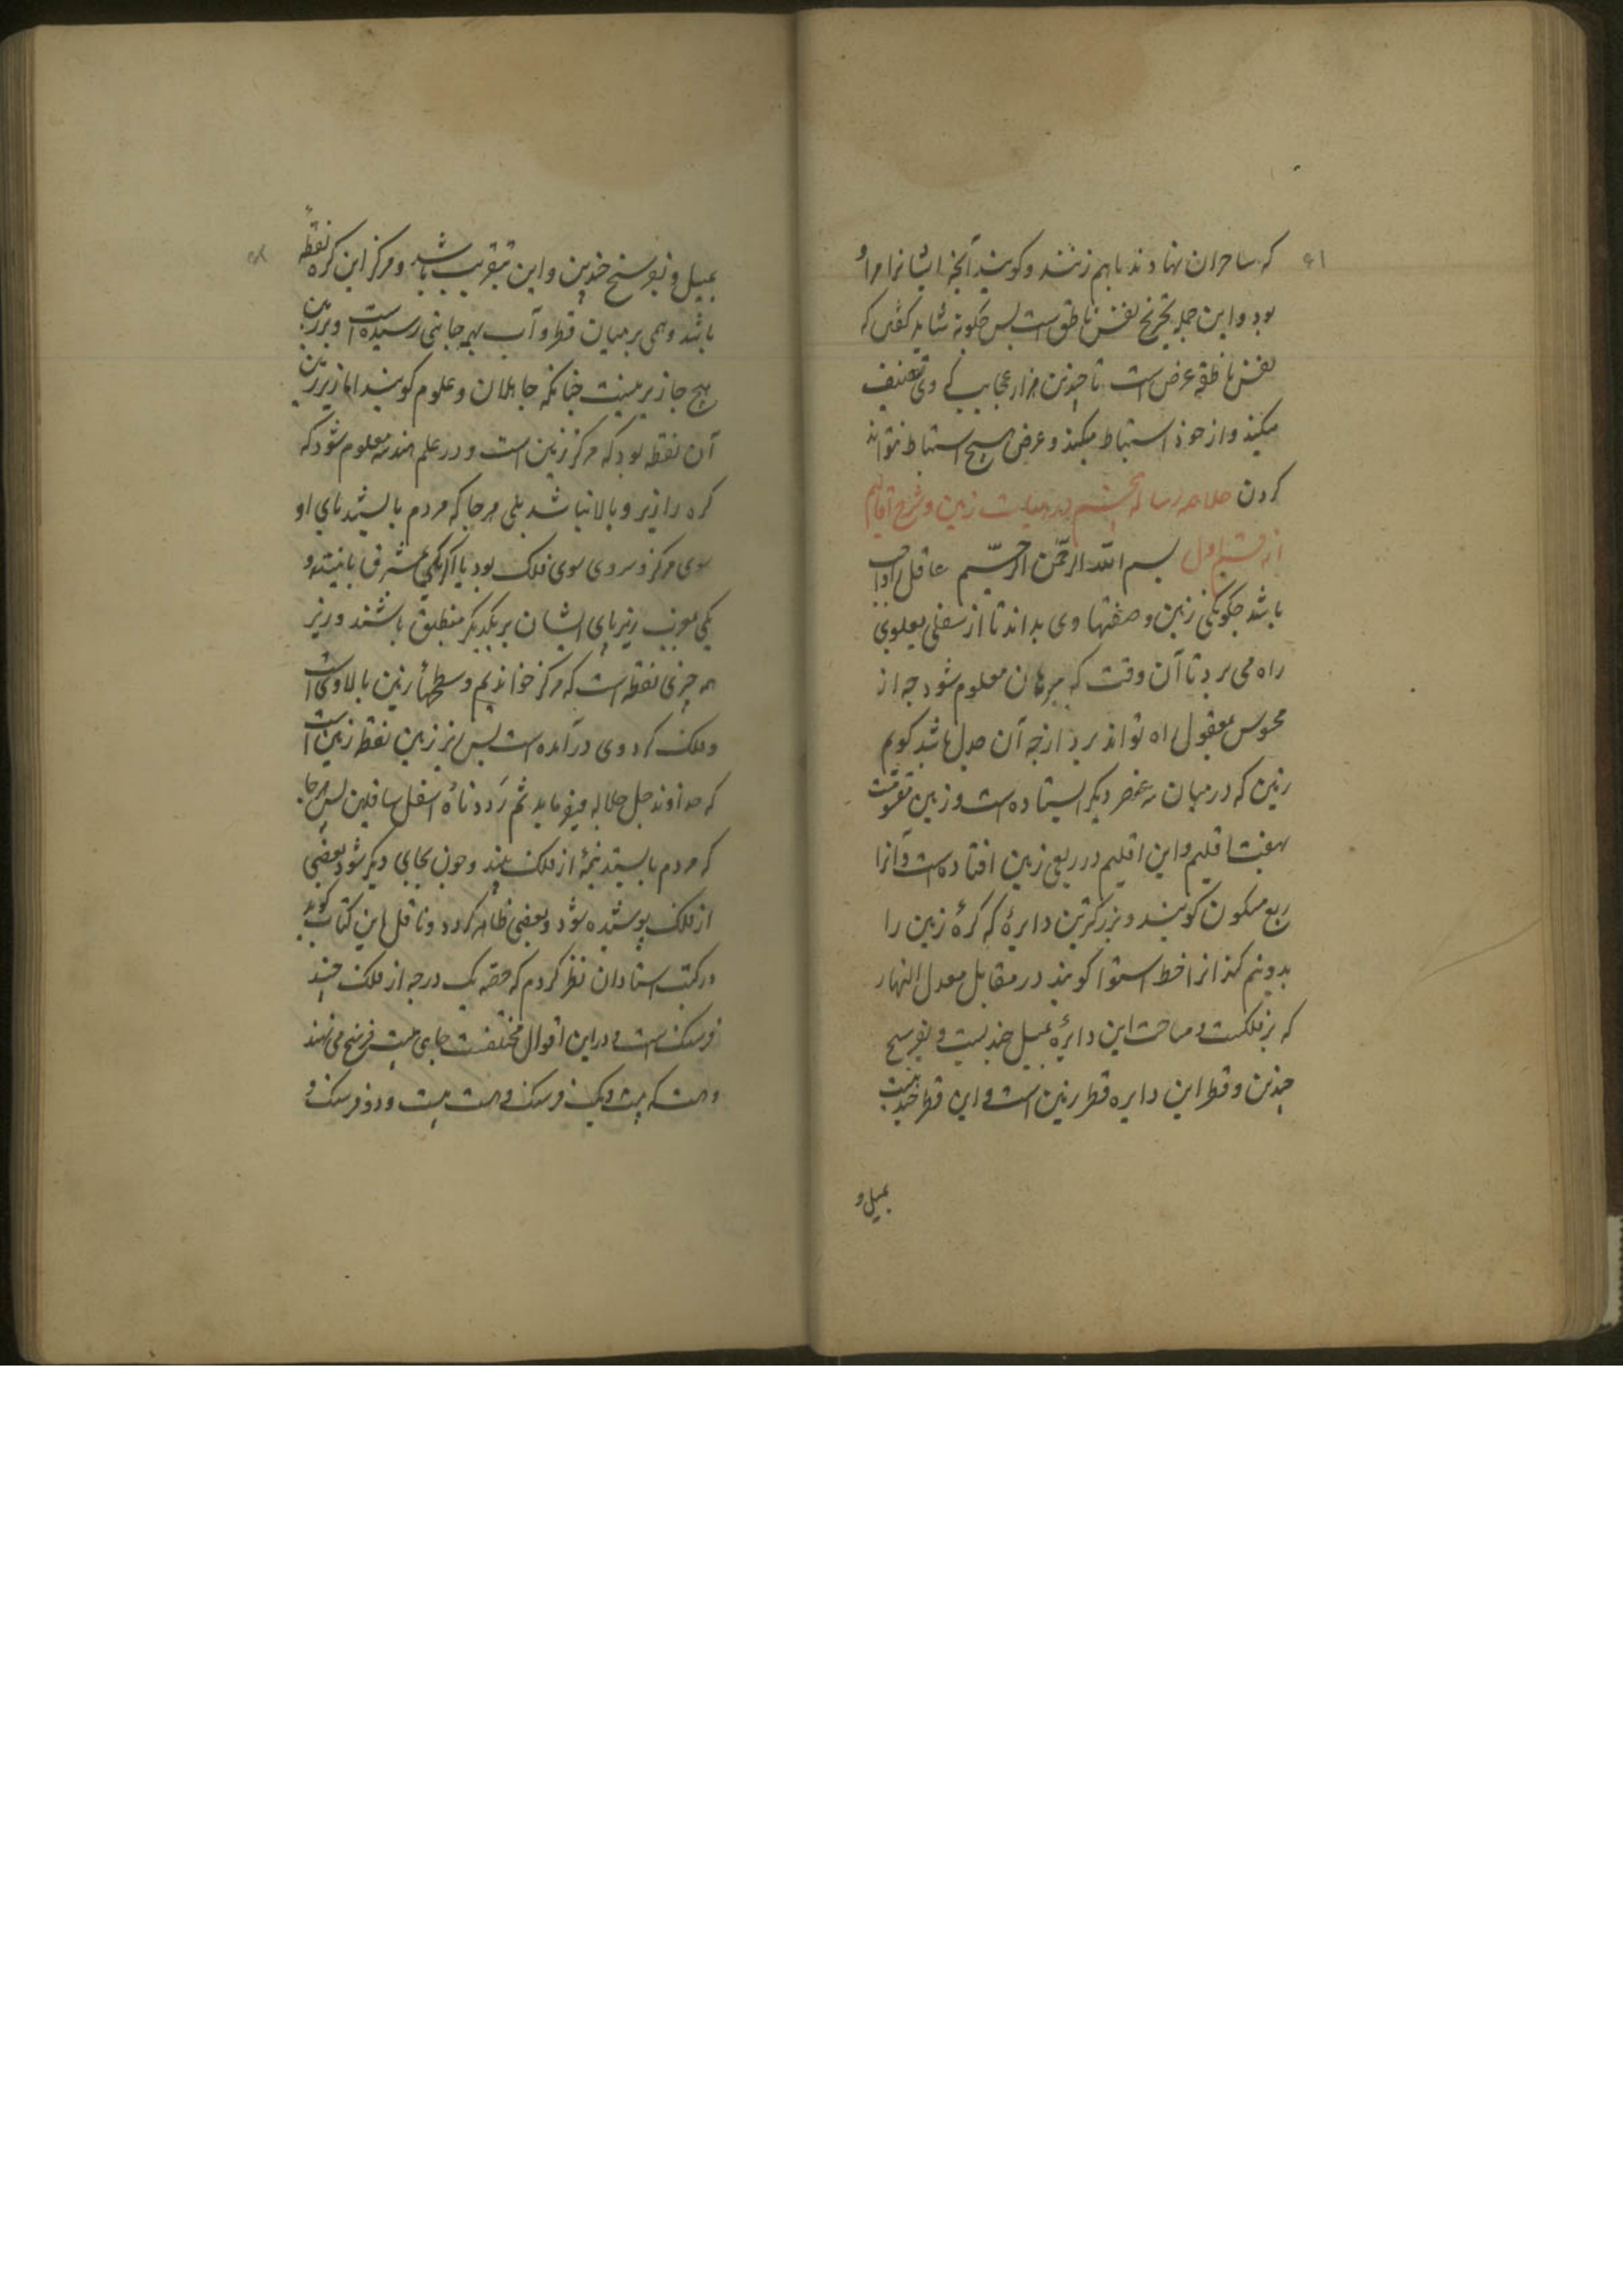 که ساحران نهادند باهم زنند و کویند آنچه ایشانرا مراد
بود و این جمله بتحریج نفس ناطق است پس چکونه شاید کفتن که
نفس ناطقه عرض است تا چندین هزار عجایب کی وی تصنیف
میکند و از خود استنباط میکند و عرض هیچ استنباط نتواند
کردن خلاصه رساله ششم در هیات زمین و شرح اقالیم
از قسم اول بسم الله الرحمن الرحیم عاقل را واجب
باشد چکونکی زمین و صفتهاء وی بداند تا از سفلی بعلوی
راه می برد تا آن وقت که ببرهان معلوم شود چه از
محسوس بمعقول راه تواند برد ازجه آن صدل باشد کویم
زمین که در میان سه عنصر دیکر ایستاده است و زمین مقسومست
بهفت اقلیم و این اقلیم در ربعی زمین افتاده است و آنرا
ربع مسکون کویند و بزرکترین دایرهٔ که کرهٔ زمین را
بدونیم کند انرا خط استوا کویند در مقابل معدل النهار
که بر فلکست و مساحت این دایرهٔ بمیل چندیست و بفرسخ
چندین و قطر این دایره قطر زمین است و این قطر چندیست
بمیل و
بمیل و بفرسخ چندین و این بتقریب باشد و مرکز این کره نقطهٔ
باشد وهمی بر میان قطر و آب بهر جانبی رسیده است و بر زمین
هیچ جا زیر نیست چنانکه جاهلان و علوم کویند اما زیر زمین
آن نقطه بود که مرکز زمین است و در علم هندسه معلوم شود که
کره را زیر و بالا نباشد بلی هرجا که مردم بایستند پای او
سوی مرکز و سر وی سوی فلک بود یا اکر یکی بمشرق بایستد و
یکی بمغرب زیر پای ایشان بر یکدیکر منطبق باشند و زیر
همه چیزی نقطه است که مرکز خواندیم و سطحهاء زمین بالا وی است
و فلک کرد وی درآمده است پس زیر زمین نقطه زمین است
که خداوند جل جلاله میفرماید ثم رددناه اسفل سافلین پس هرجا
که مردم بایستد نیمهٔ از فلک بیند و چون بجای دیکر شود بعضی
از فلک پوشیده شود و بعضی ظاهر کردد و ناقل این کتاب کوید
در کتب استادان نظر کردم که حصه یک درجه از فلک چند
فرسنک است و دراین اقوال مختلفست جایی بیست فرسخ می نهند
و هست که بیست و یک فرسنک و هست بیست و دو فرسنک و